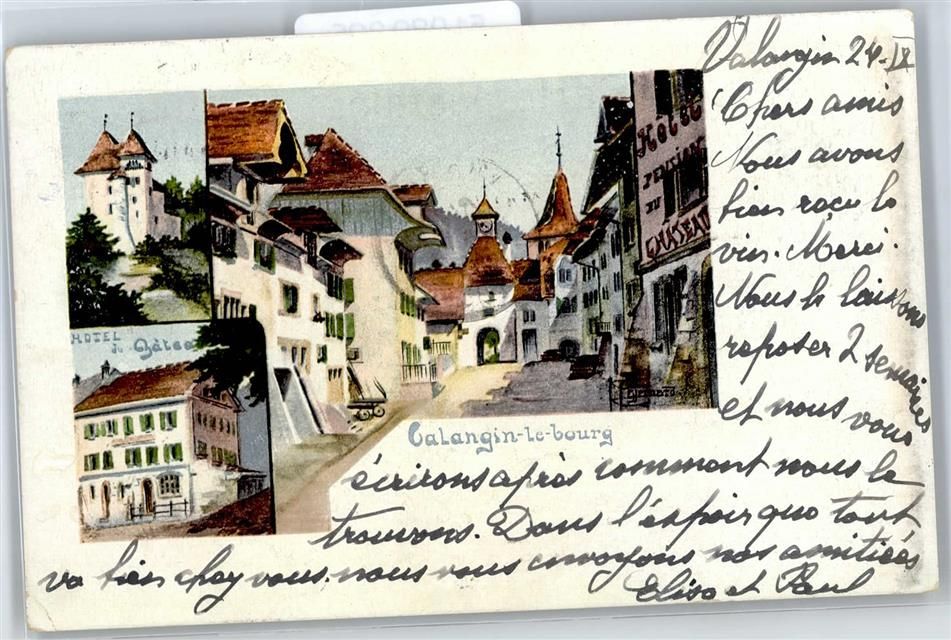 Valangin 24. IX
Chers amis
Nous avons
bien reçu le
vin. Merci.
Nous le laissons
reposer 2 semaines
et nous vous
écrirons après comment nous le
trouvons. Dans l'espoir que tout
va bien chez vous, nous vous envoyons nos amitiés
Elise et Paul
Hotel
PENSION
DU
CHATEAU
HOTEL
du Château
Valangin-le-bourg